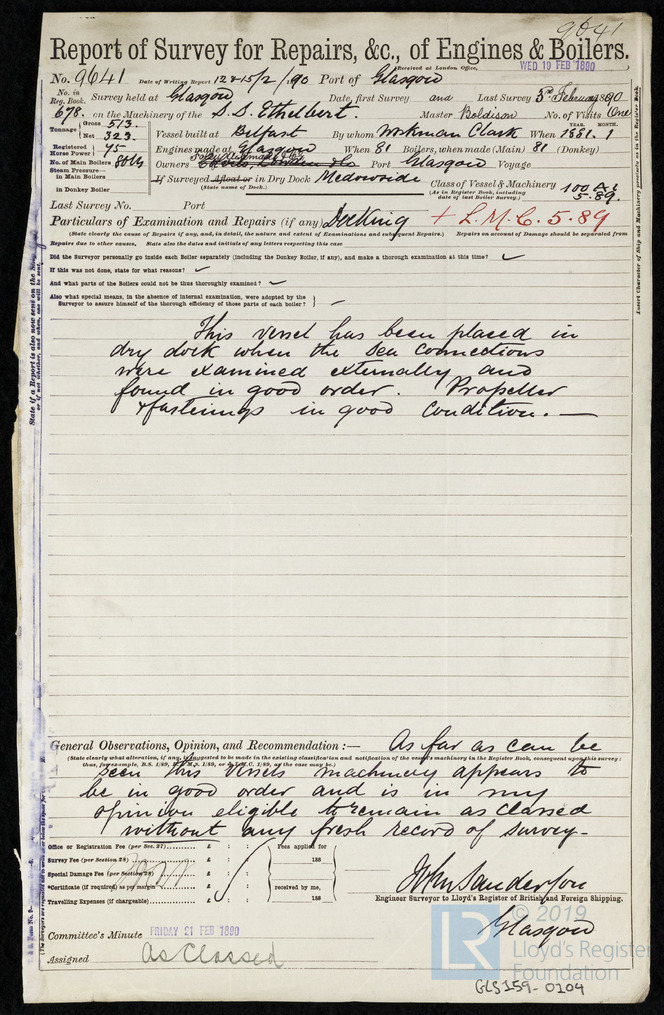 9641
Report of Survey for Repairs, &c., of Engines & Boilers.
Received at London Office, WED 19 FEB 1890
No. 9641 Date of Writing Report 12 & 15/2/90 Port of Glasgow
No. in Reg. Book. Survey held at Glasgow Date, first Survey and Last Survey 5th February 1890
678. on the Machinery of the S.S. Ethelbert. Master Boldison No. of Visits One
Tonnage Gross 513. Net 323. Vessel built at Belfast By whom Workman Clark When 1881. 1 YEAR. MONTH.
Registered Horse Power 75 Engines made at Glasgow When 81 Boilers, when made (Main) 81 (Donkey)
No. of Main Boilers Owners Port Glasgow Voyage
Steam Pressure— in Main Boilers 80 lbs
in Donkey Boiler
If Surveyed Afloat or in Dry Dock Medowside
(State name of Dock.)
Class of Vessel & Machinery 100 A1 5.89.
(As in Register Book, including date of last Boiler Survey.)
Last Survey No. Port
Particulars of Examination and Repairs (if any) Docking + L.M.C. 5.89
(State clearly the cause of Repairs if any, and, in detail, the nature and extent of Examinations and subsequent Repairs.) Repairs on account of Damage should be separated from
Repairs due to other causes. State also the dates and initials of any letters respecting this case
Did the Surveyor personally go inside each Boiler separately (including the Donkey Boiler, if any), and make a thorough examination at this time?
If this was not done, state for what reasons?
And what parts of the Boilers could not be thoroughly examined?
Also what special means, in the absence of internal examination, were adopted by the
Surveyor to assure himself of the thorough efficiency of those parts of each boiler?
This vessel has been placed in
dry dock when the sea connections
were examined externally and
found in good order. Propeller
& fastenings in good condition.
General Observations, Opinion, and Recommendation :— As far as can be
(State clearly what alteration, if any, is suggested to be made in the existing classification and notification of the vessel's machinery in the Register Book, consequent upon this survey:
thus, for example, B.S. 1/89, or L.M.C. 1/89, as the case may be.)
seen this vessels machinery appears to
be in good order and is in my
opinion eligible to remain as classed
without any fresh record of survey-
Office or Registration Fee (per Sec. 27) £ : :
Survey Fee (per Section 28) £ : :
Special Damage Fee (per Section 28) £ : :
*Certificate (if required) as per margin £ : :
Travelling Expenses (if chargeable) £ : :
Fees applied for
188
received by me,
188
John Sanderson
Engineer Surveyor to Lloyd's Register of British and Foreign Shipping.
Glasgow
Committee's Minute FRIDAY 21 FEB 1890
Assigned As Classed
State if a Report is also now sent on the Ship
or if not, whether, and when, one will be sent.
Insert Character of Ship and Machinery precisely as in the Register Book.
LR © 2019
Lloyd's Register
Foundation
GLS159-0104